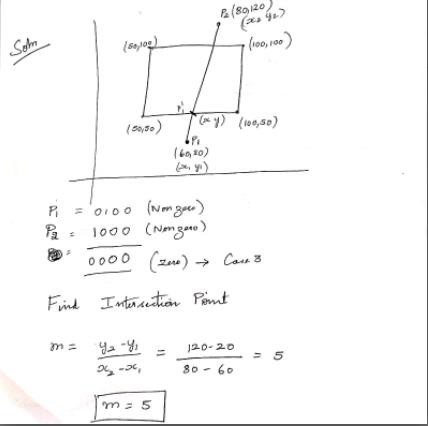 Soln
P2 (80,120)
(x2 y2)
(50,100)
(100,100)
P1'
(x y)
(50,50)
(100,50)
P1
(60,20)
(x1 y1)
P1 = 0100 (Non zero)
P2 = 1000 (Non zero)
0000 (zero) → Case 3
Find Intersection Point
m = y2 - y1 / x2 - x1 = 120-20 / 80 - 60 = 5
m = 5